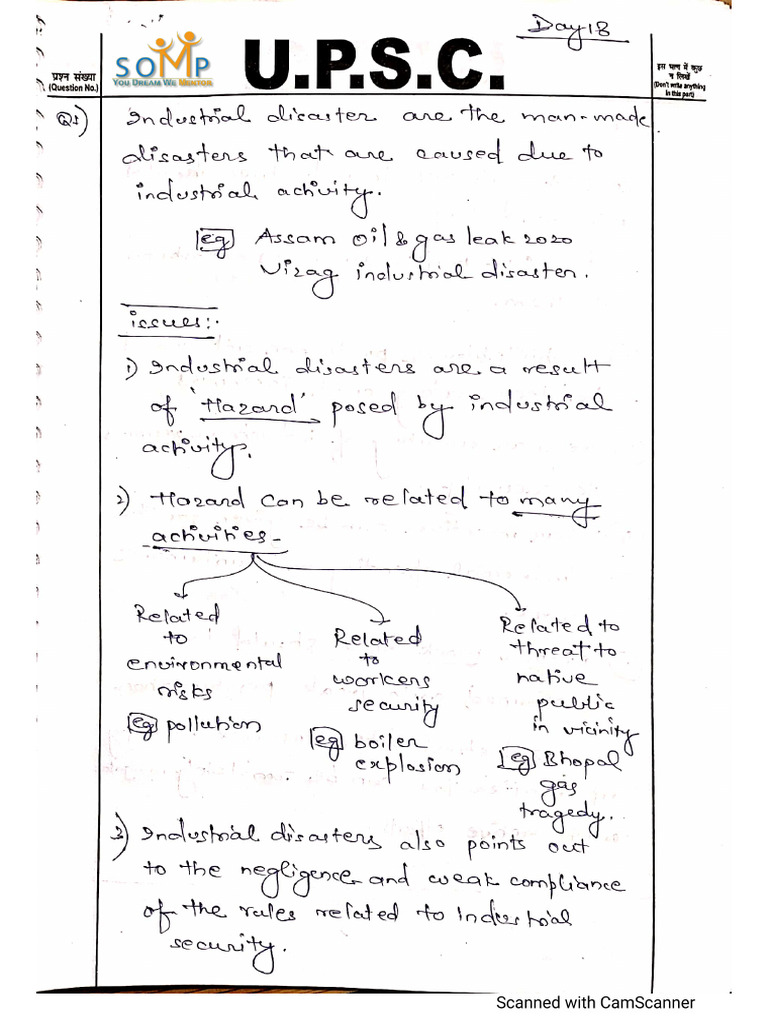 Day 18
SOMP
YOU DREAM WE MENTOR
U.P.S.C.
प्रश्न संख्या
(Question No.)
इस भाग में कुछ
न लिखें
(Don't write anything
in this part)
Q1)
Industrial disaster are the man-made
disasters that are caused due to
industrial activity.
eg Assam oil & gas leak 2020
Vizag industrial disaster.
issues:-
1) Industrial disasters are a result
of 'Hazard' posed by industrial
activity.
2) Hazard can be related to many
activities-
Related
to
environmental
risks
eg pollution
Related
to
workers
security
eg boiler
explosion
Related to
threat to
native
public
in vicinity
eg Bhopal
gas
tragedy.
3) Industrial disasters also points out
to the negligence and weak compliance
of the rules related to industrial
security.
Scanned with CamScanner